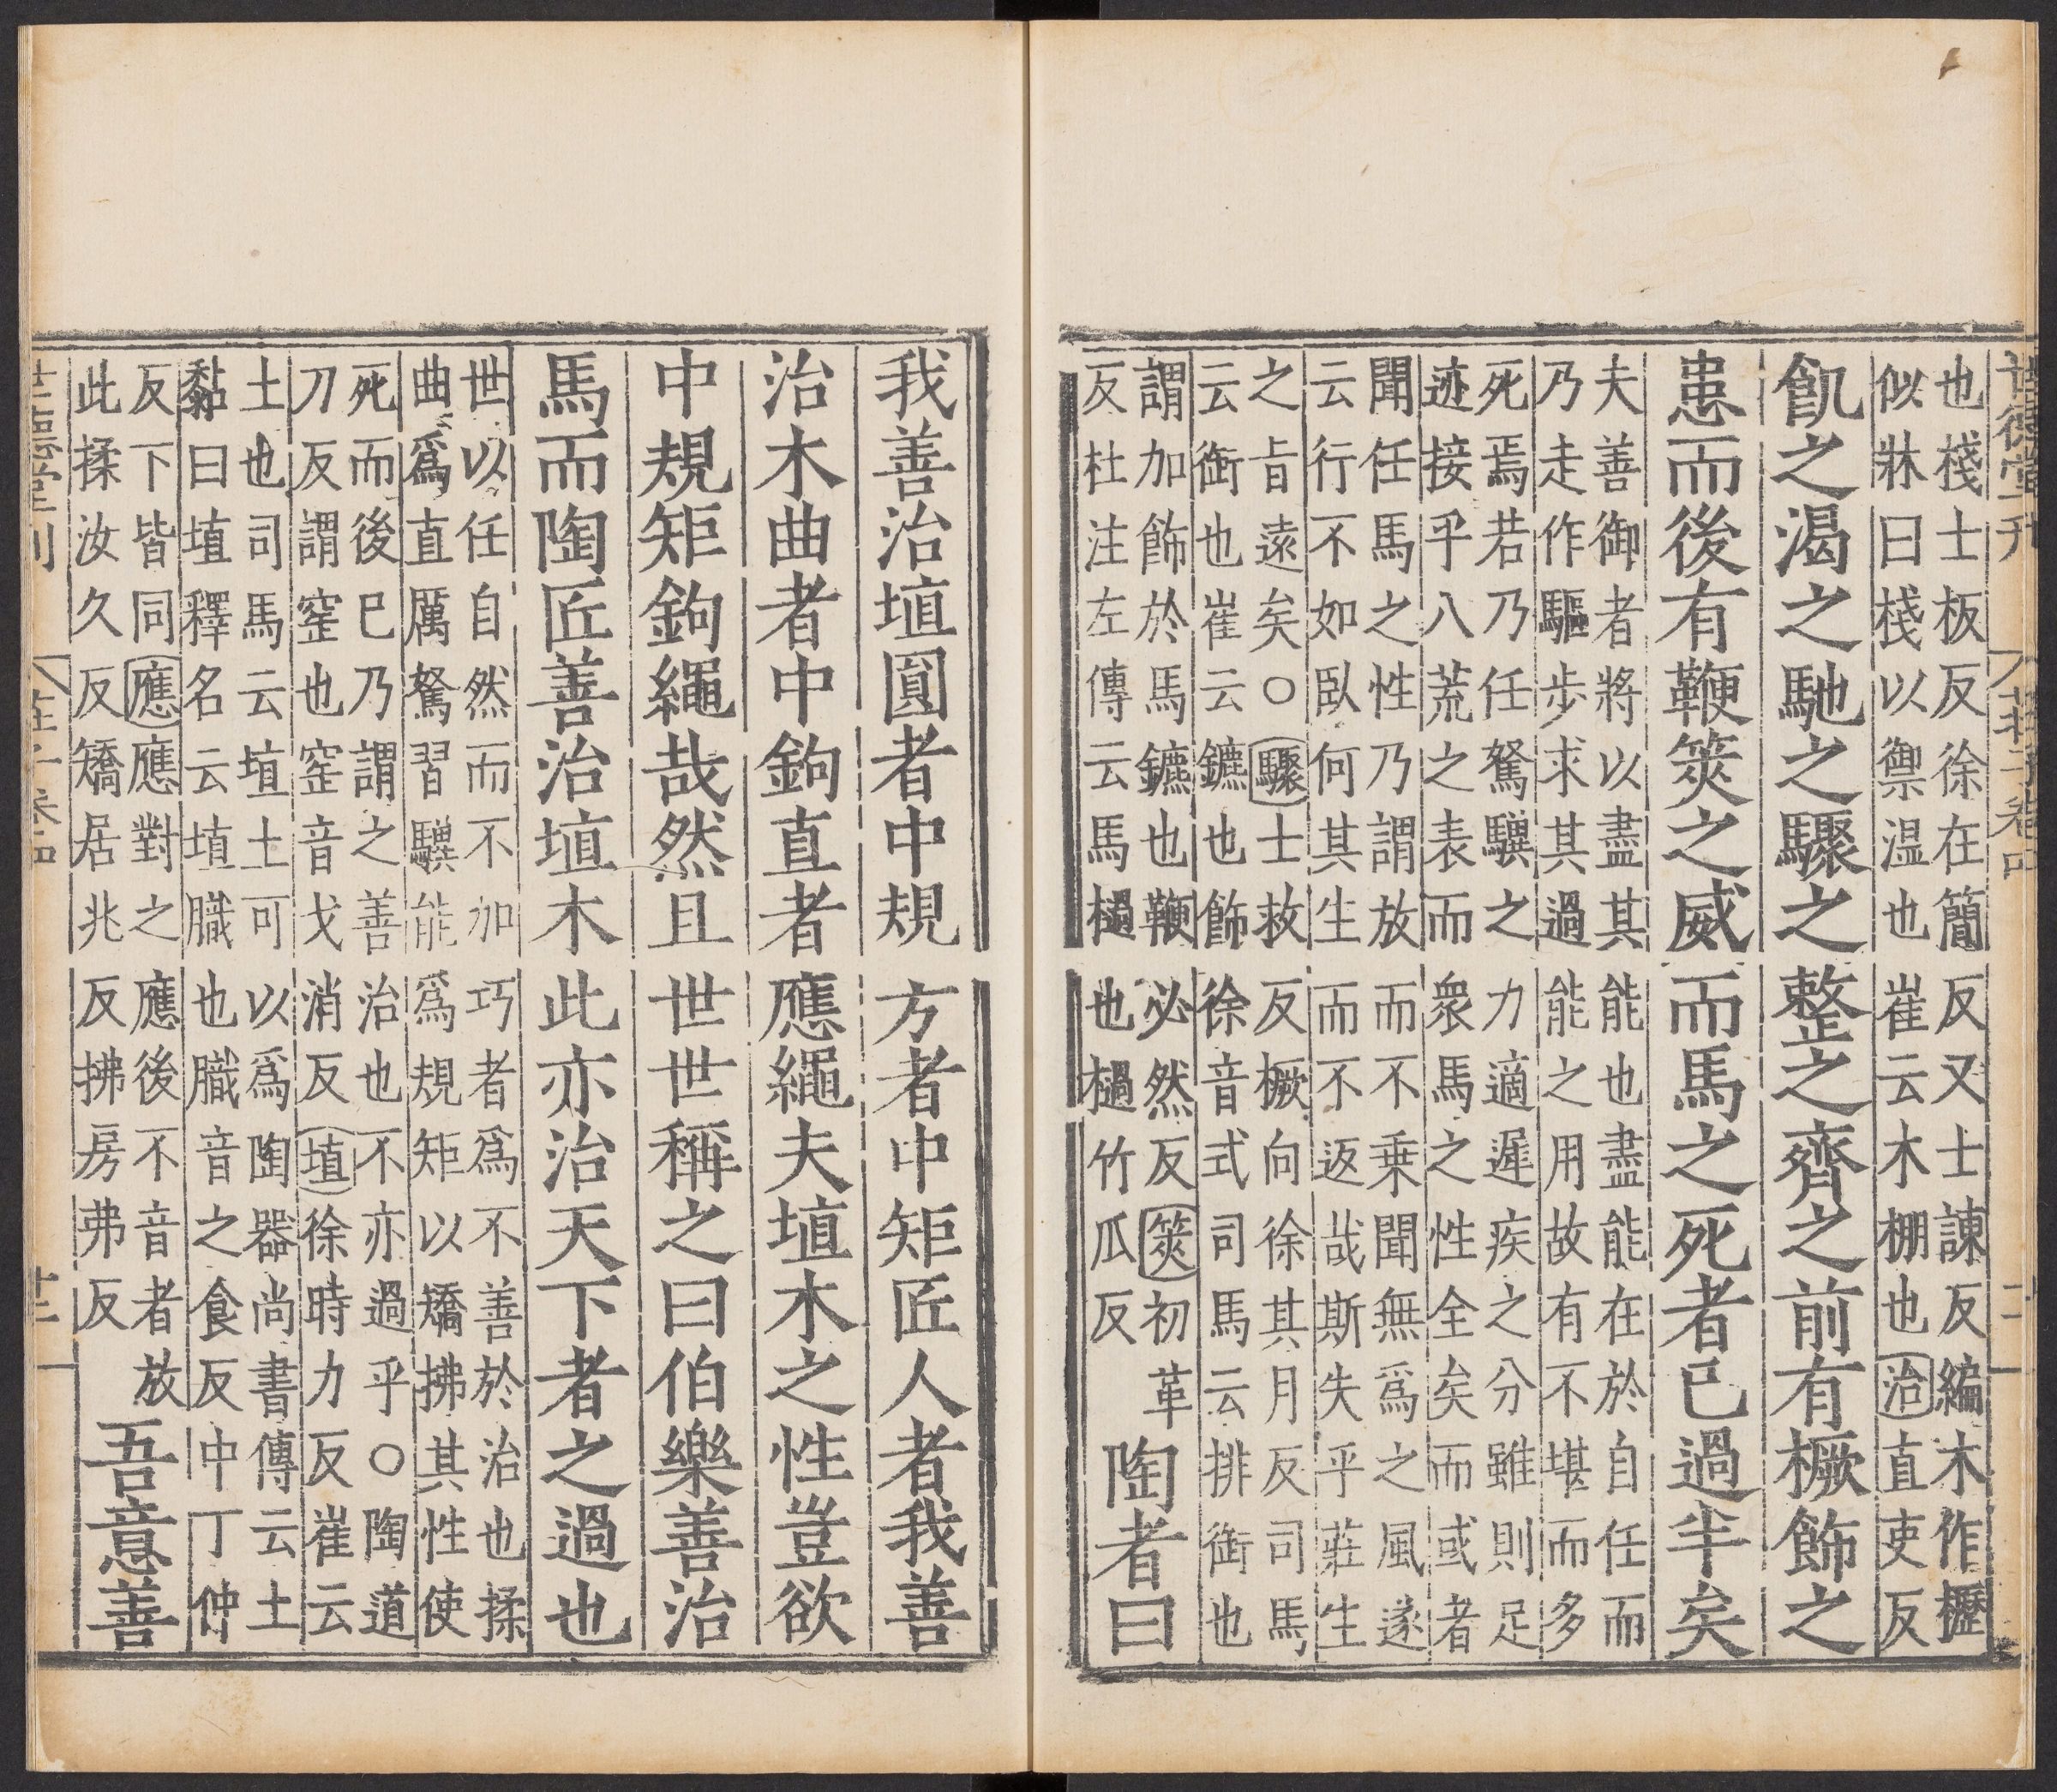 也棧士板反徐在簡反又士諫反編木作櫪
似牀曰棧以禦溫也崔云木棚也治直吏反
飢之渴之馳之驟之整之齊之前有橛飾之
患而後有鞭筴之威而馬之死者已過半矣
夫善御者將以盡其能也盡能在於自任而
乃走作驅步求其過能之用故有不堪而多
死焉若乃任駑驥之力適遲疾之分雖則足
迹接乎八荒之表而衆馬之性全矣而或者
聞任馬之性乃謂放而不乗聞無爲之風遂
云行不如臥何其生而不返哉斯失乎莊生
之旨遠矣○驟士救反橛向徐其月反司馬
云銜也崔云鑣也飾徐音式司馬云排銜也
謂加飾於馬鑣也鞭必然反筴初革
反杜注左傳云馬檛也檛竹瓜反
陶者曰
我善治埴圓者中規方者中矩匠人者我善
治木曲者中鉤直者應繩夫埴木之性豈欲
中規矩鉤繩哉然且世世稱之曰伯樂善治
馬而陶匠善治埴木此亦治天下者之過也
世以任自然而不加巧者爲不善於治也揉
曲爲直厲駑習驥能爲規矩以矯拂其性使
死而後已乃謂之善治也不亦過乎○陶道
刀反謂窑也窑音弋消反埴徐時力反崔云
土也司馬云埴土可以爲陶器尚書傳云土
黏曰埴釋名云埴膱也膱音之食反中丁仲
反下皆同應應對之應後不音者放
此揉汝久反矯居兆反拂房弗反
吾意善